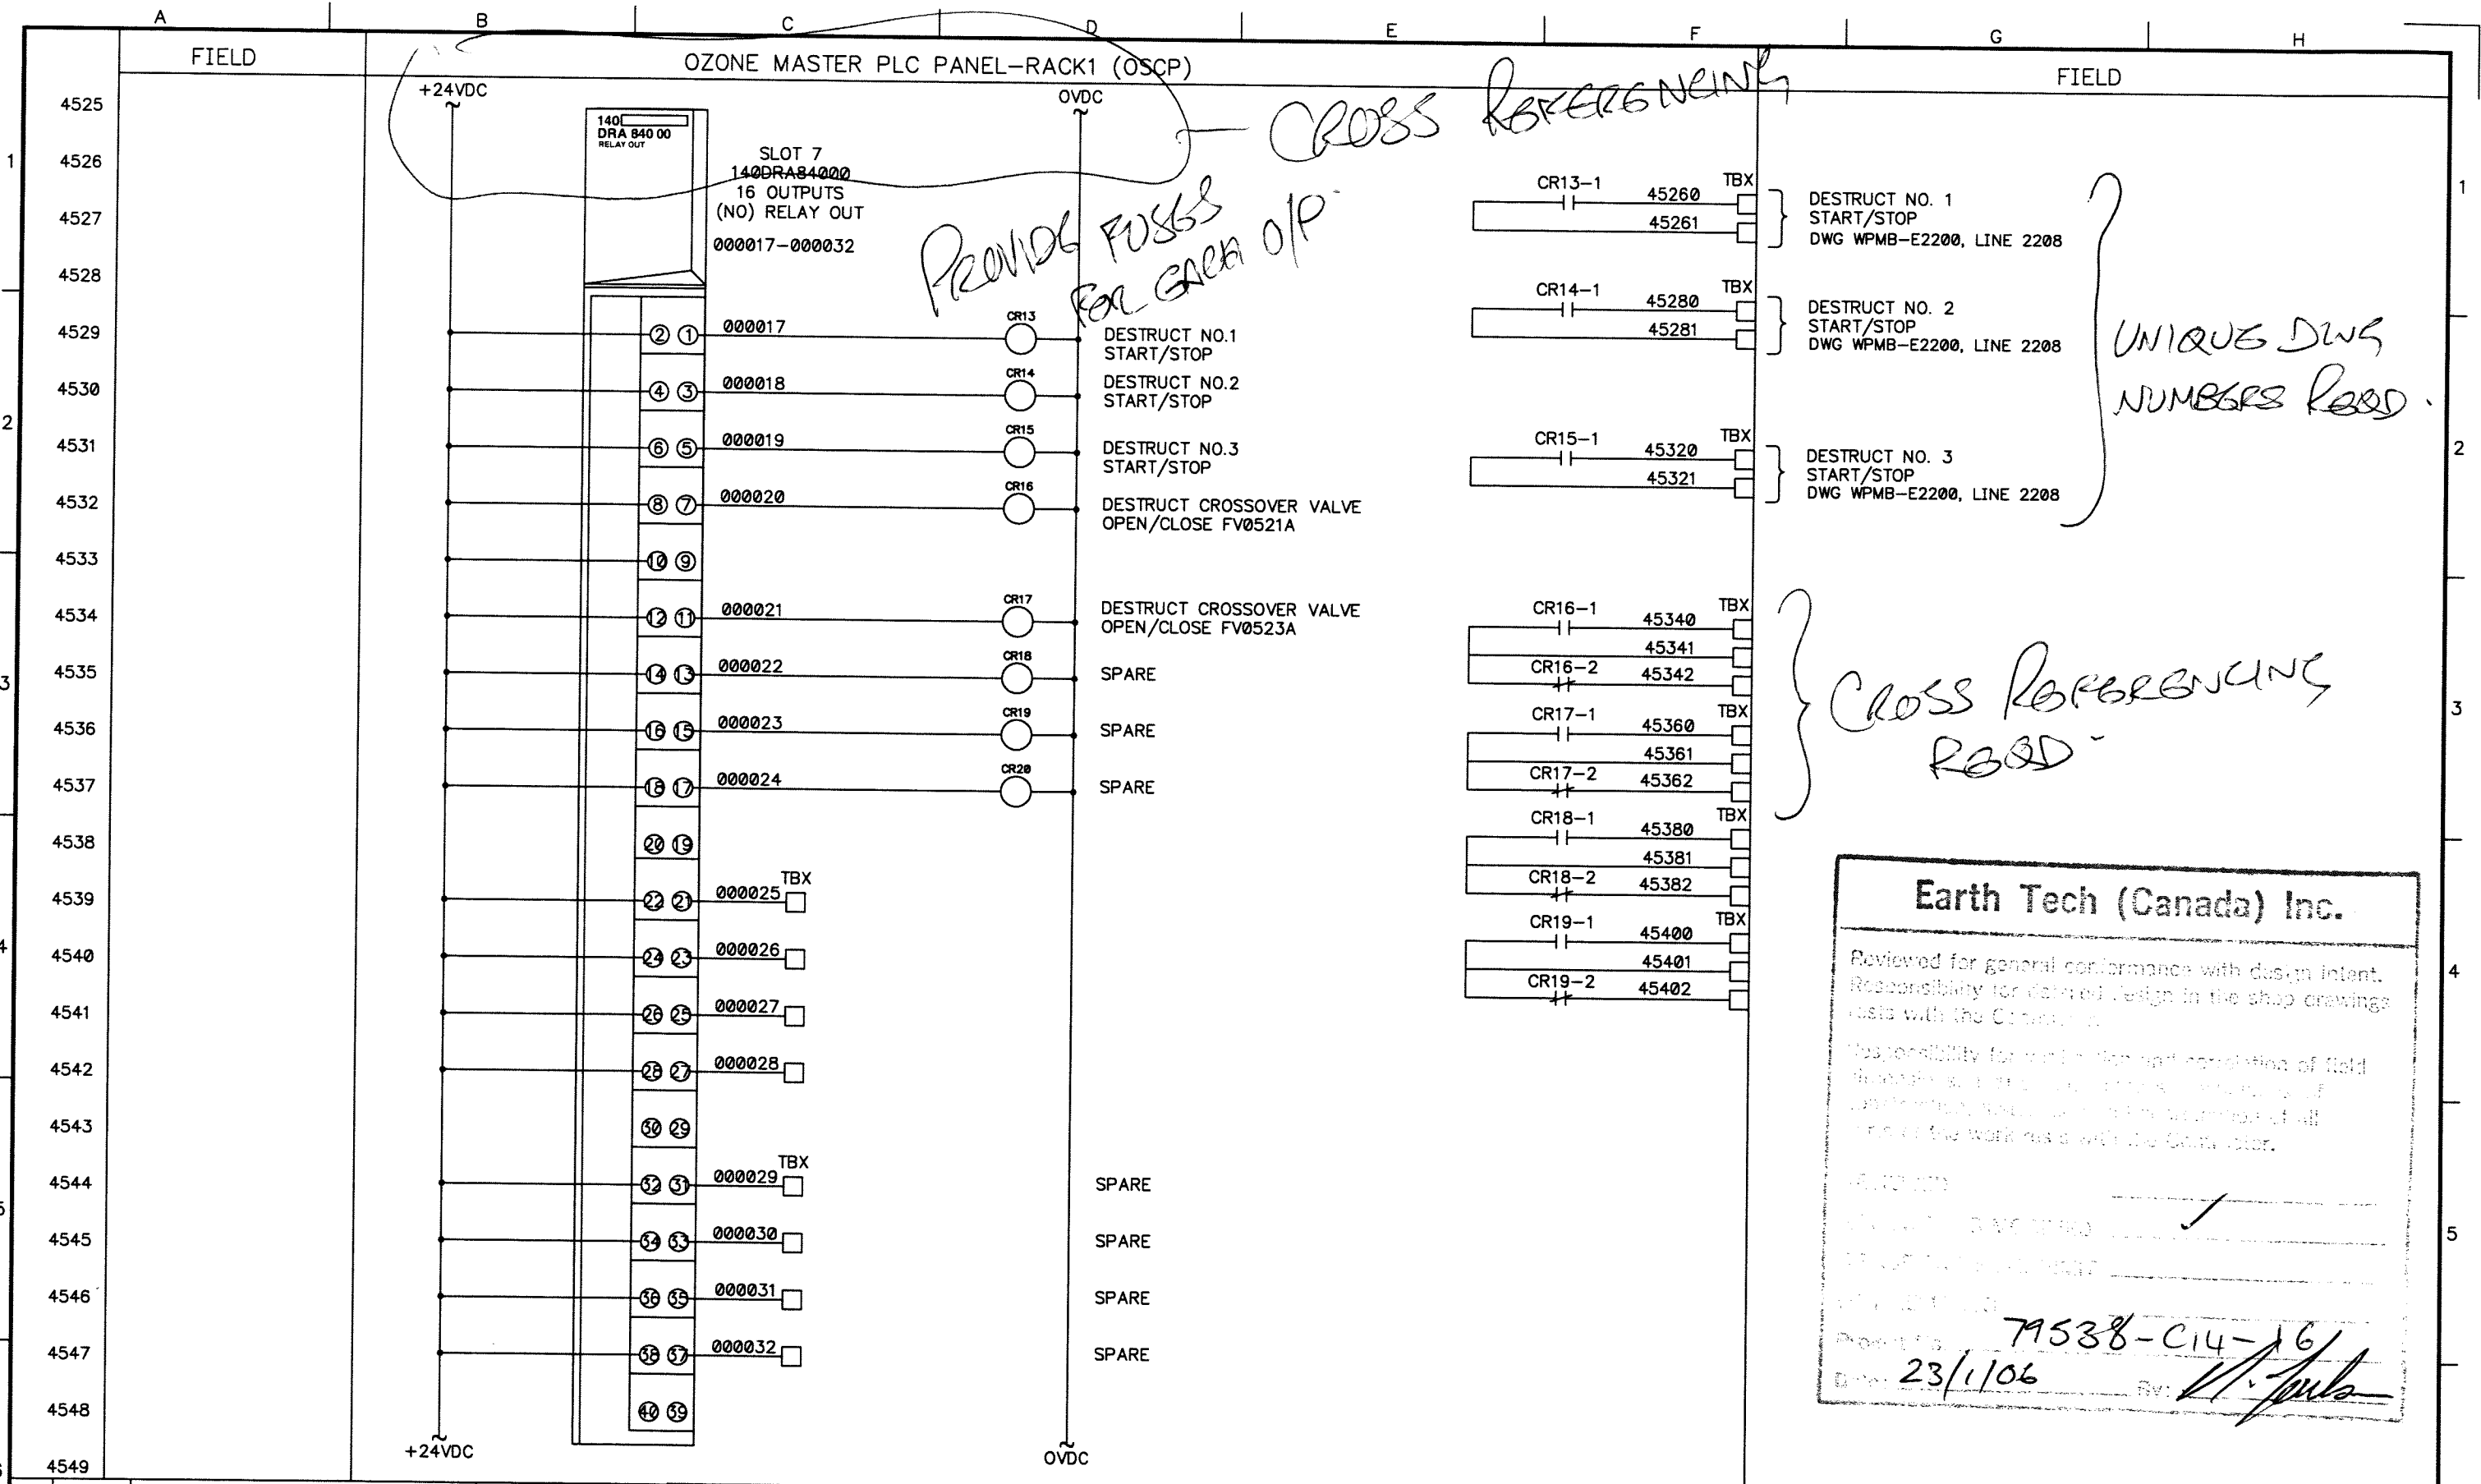 A B C D E F G H
FIELD
OZONE MASTER PLC PANEL-RACK1 (OSCP)
FIELD
+24VDC
0VDC
CROSS REFERENCING
4525
4526
4527
4528
4529
4530
4531
4532
4533
4534
4535
4536
4537
4538
4539
4540
4541
4542
4543
4544
4545
4546
4547
4548
4549
1
2
3
4
5
6
140
DRA 840 00
RELAY OUT
SLOT 7
140DRA84000
16 OUTPUTS
(NO) RELAY OUT
000017-000032
PROVIDE FUSES
FOR EACH O/P
2 1 000017 CR13
DESTRUCT NO.1
START/STOP
4 3 000018 CR14
DESTRUCT NO.2
START/STOP
6 5 000019 CR15
DESTRUCT NO.3
START/STOP
8 7 000020 CR16
DESTRUCT CROSSOVER VALVE
OPEN/CLOSE FV0521A
10 9
12 11 000021 CR17
DESTRUCT CROSSOVER VALVE
OPEN/CLOSE FV0523A
14 13 000022 CR18 SPARE
16 15 000023 CR19 SPARE
18 17 000024 CR20 SPARE
20 19
TBX
22 21 000025
24 23 000026
26 25 000027
28 27 000028
30 29
TBX
32 31 000029 SPARE
34 33 000030 SPARE
36 35 000031 SPARE
38 37 000032 SPARE
40 39
+24VDC
0VDC
CR13-1 45260 TBX
45261
DESTRUCT NO. 1
START/STOP
DWG WPMB-E2200, LINE 2208
CR14-1 45280 TBX
45281
DESTRUCT NO. 2
START/STOP
DWG WPMB-E2200, LINE 2208
UNIQUE DWG
NUMBERS REQD.
CR15-1 45320 TBX
45321
DESTRUCT NO. 3
START/STOP
DWG WPMB-E2200, LINE 2208
CR16-1 45340 TBX
45341
CR16-2 45342
CR17-1 45360 TBX
45361
CR17-2 45362
CROSS REFERENCING
REQD-
CR18-1 45380 TBX
45381
CR18-2 45382
CR19-1 45400 TBX
45401
CR19-2 45402
1
2
3
4
5
Earth Tech (Canada) Inc.
Reviewed for general conformance with design intent.
Responsibility for detailed design in the shop drawings
rests with the
Responsibility for and correlation of field
of
of all
of the work with the
79538-C14-16
Date: 23/1/06 By: